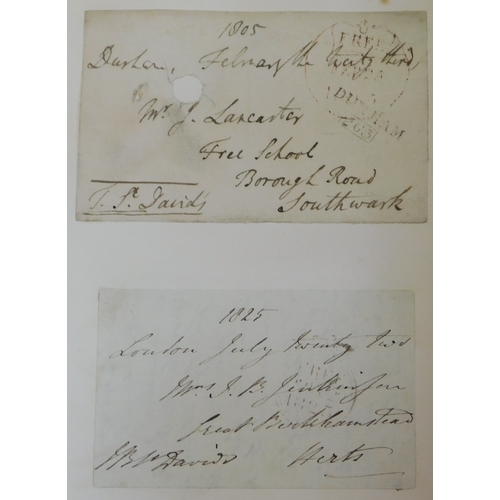 1805
Durham, February the twenty third
Mr. J. Lancaster
Free School
Borough Road
Southwark
T. St. Davids
FREE
DURHAM
263
1825
London July twenty two
Mrs J. B. Jenkinson
Great Berkhamstead
Herts
J B St Davids